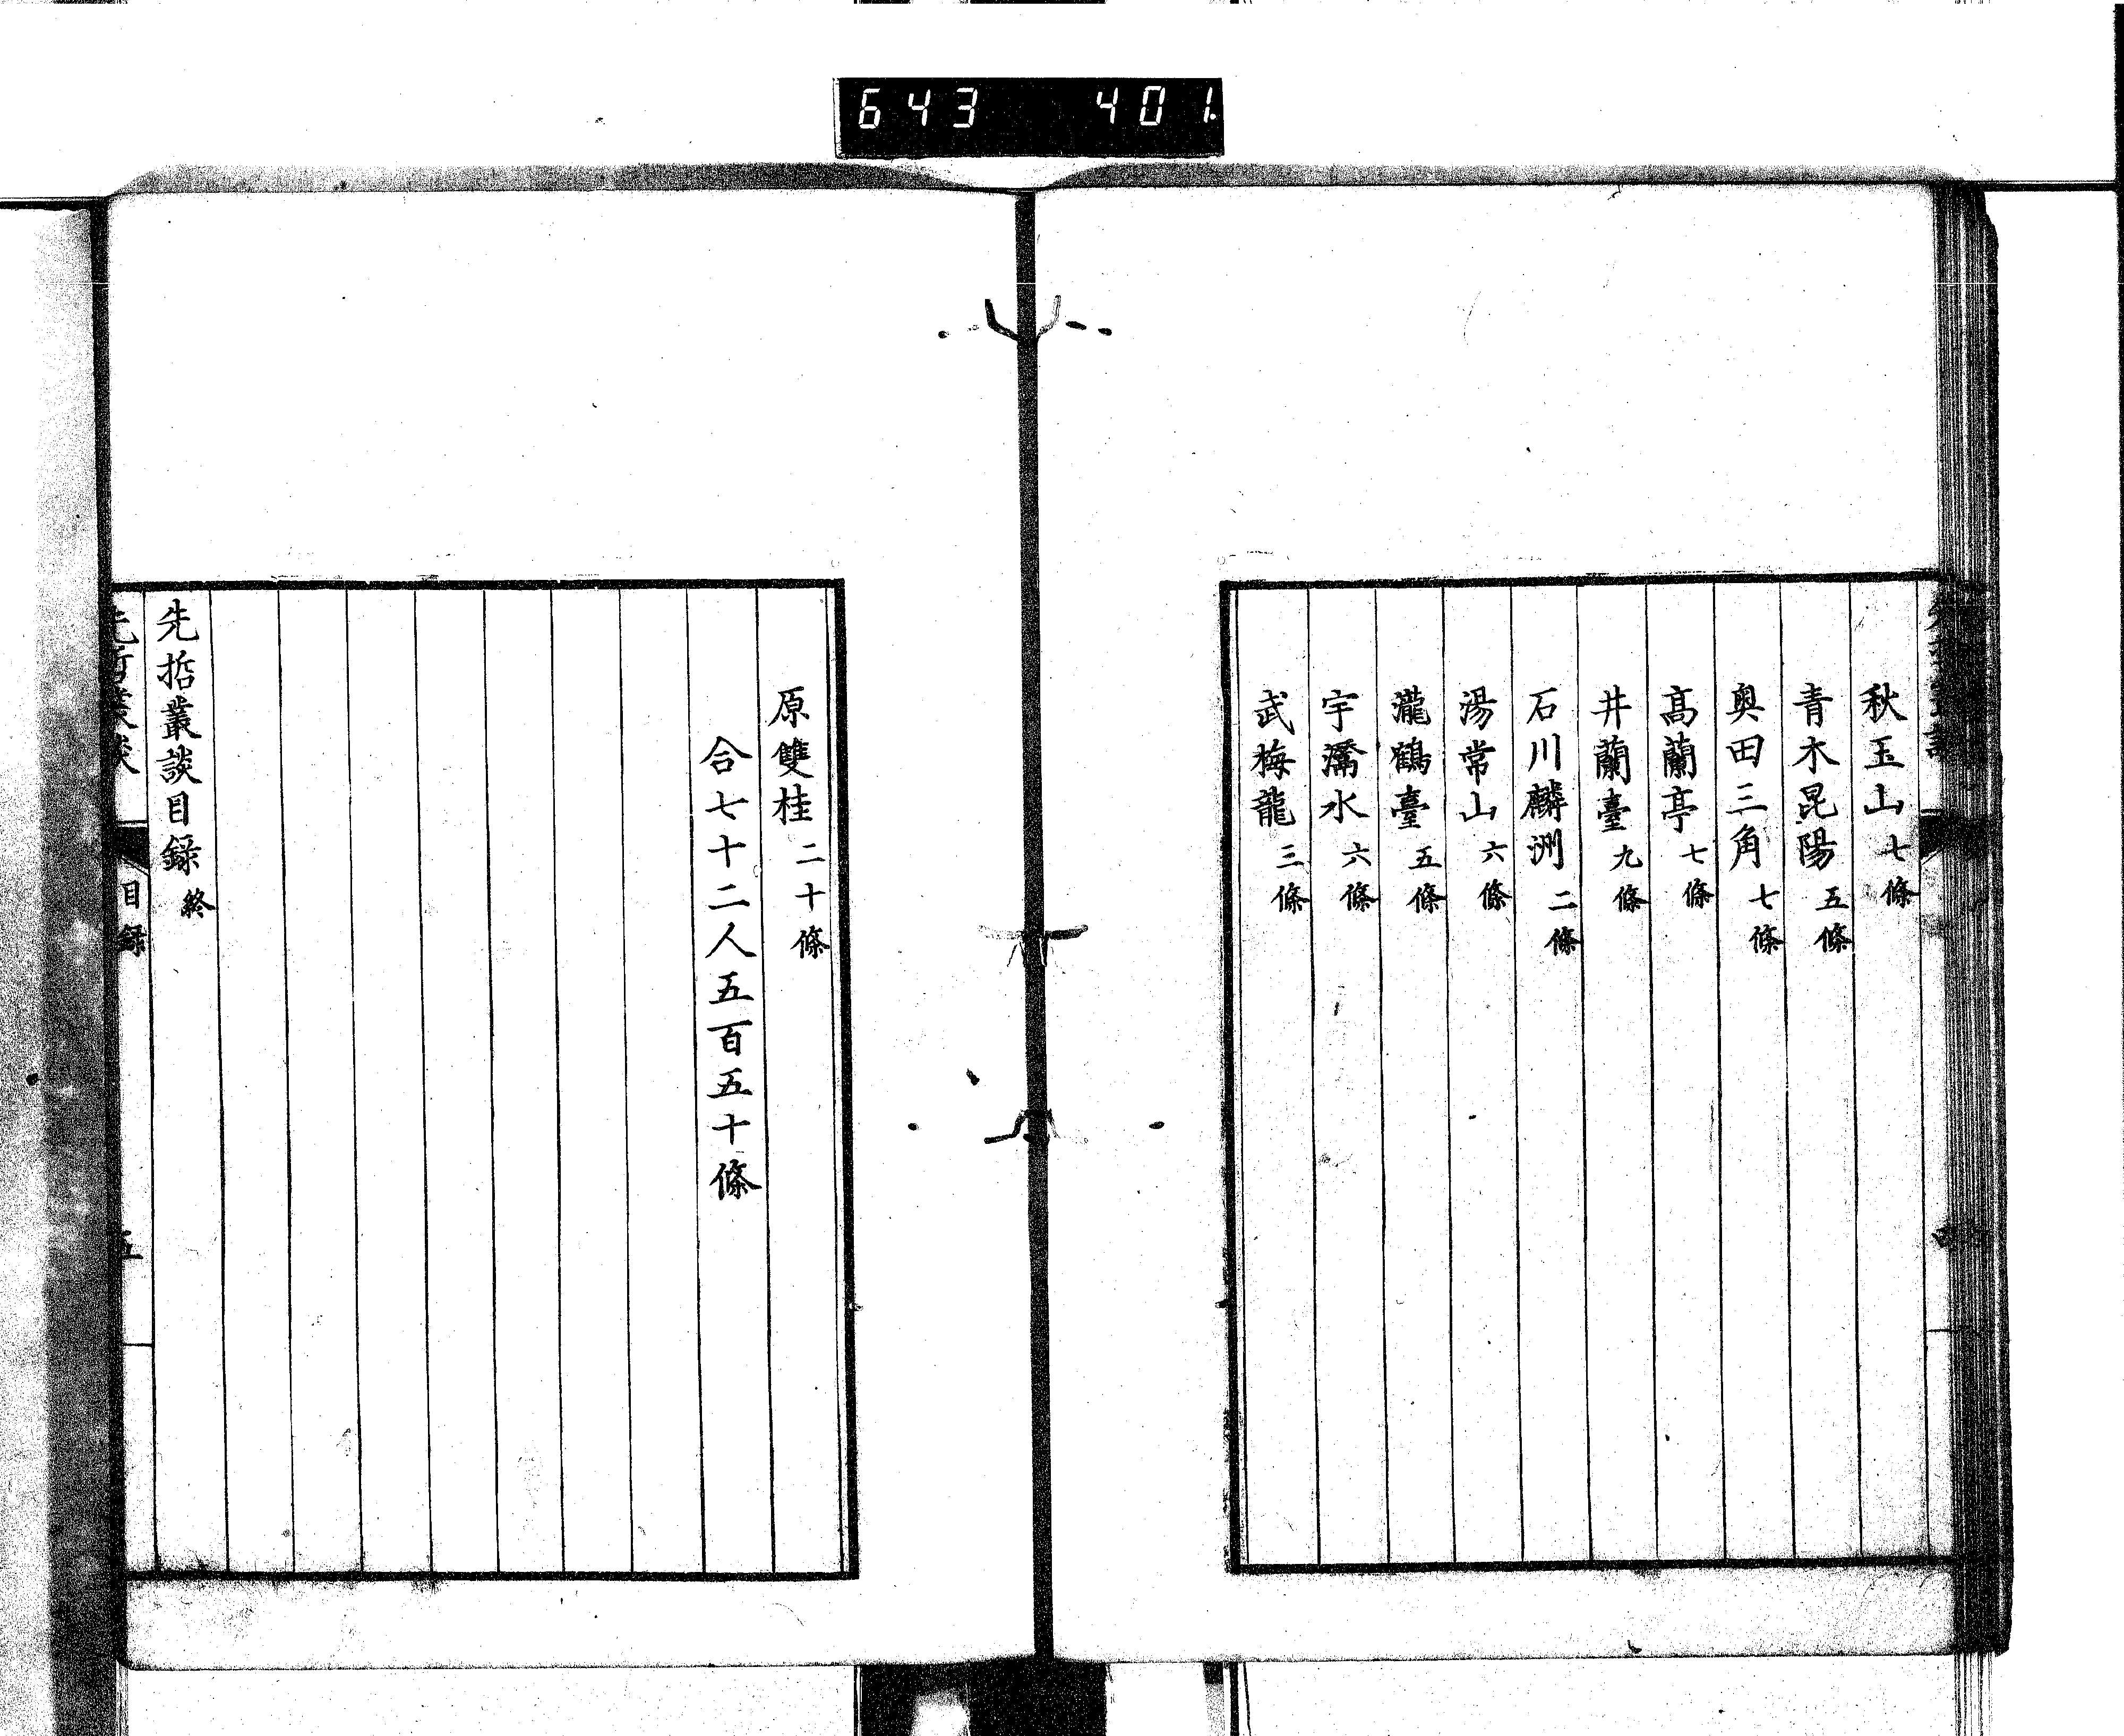 643 401
秋玉山 七條
青木昆陽 五條
奥田三角 七條
髙蘭亭 七條
井蘭臺 九條
石川麟洲 二條
湯常山 六條
瀧鶴臺 五條
宇灊水 六條
武梅龍 三條
四
原雙桂 二十條
合七十二人五百五十條
先哲叢談目録 終
先哲叢談 目録 五